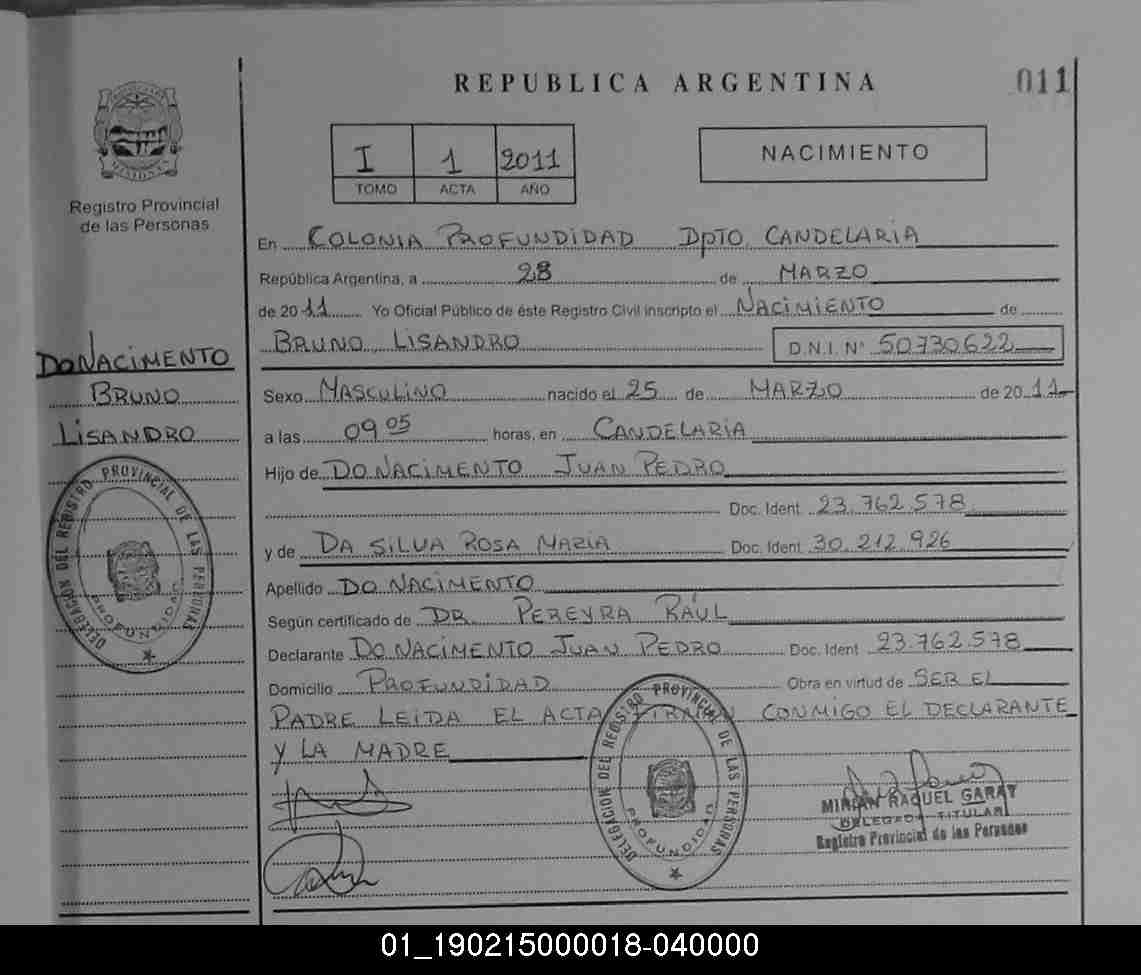 REPUBLICA ARGENTINA
011
MISIONES
Registro Provincial
de las Personas
I 1 2011
TOMO ACTA AÑO
NACIMIENTO
En COLONIA PROFUNDIDAD DPTO CANDELARIA
República Argentina, a 28 de MARZO
de 2011 Yo Oficial Público de éste Registro Civil inscripto el NACIMIENTO de
BRUNO LISANDRO D.N.I. N° 50730622
DO NACIMENTO
BRUNO
LISANDRO
Sexo MASCULINO nacido el 25 de MARZO de 2011
a las 09 05 horas, en CANDELARIA
Hijo de DO NACIMENTO JUAN PEDRO
Doc. Ident. 23.762.578
y de DA SILVA ROSA MARIA Doc. Ident. 30.212.926
Apellido DO NACIMENTO
Según certificado de DR. PEREYRA RAÚL
Declarante DO NACIMENTO JUAN PEDRO Doc. Ident 23.762.578
Domicilio PROFUNDIDAD Obra en virtud de SER EL
PADRE LEIDA EL ACTA FIRMAN CONMIGO EL DECLARANTE
Y LA MADRE
DELEGACION DEL REGISTRO PROVINCIAL DE LAS PERSONAS
PROFUNDIDAD
DELEGACION DEL REGISTRO PROVINCIAL DE LAS PERSONAS
PROFUNDIDAD
MIRIAN RAQUEL GARAY
DELEGADA TITULAR
Registro Provincial de las Personas
01_190215000018-040000